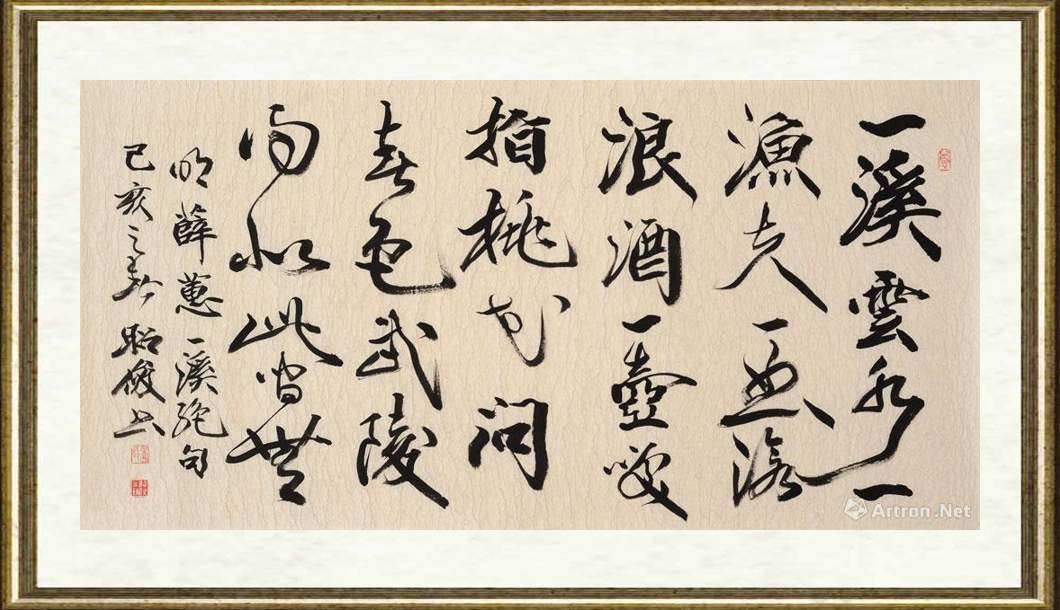 一溪雲水一
漁夫一曲滄
浪酒一壺笑
指桃花問
春色武陵
似此間無
明薛蕙一溪絕句
己亥之 昭俊书
Artron.Net